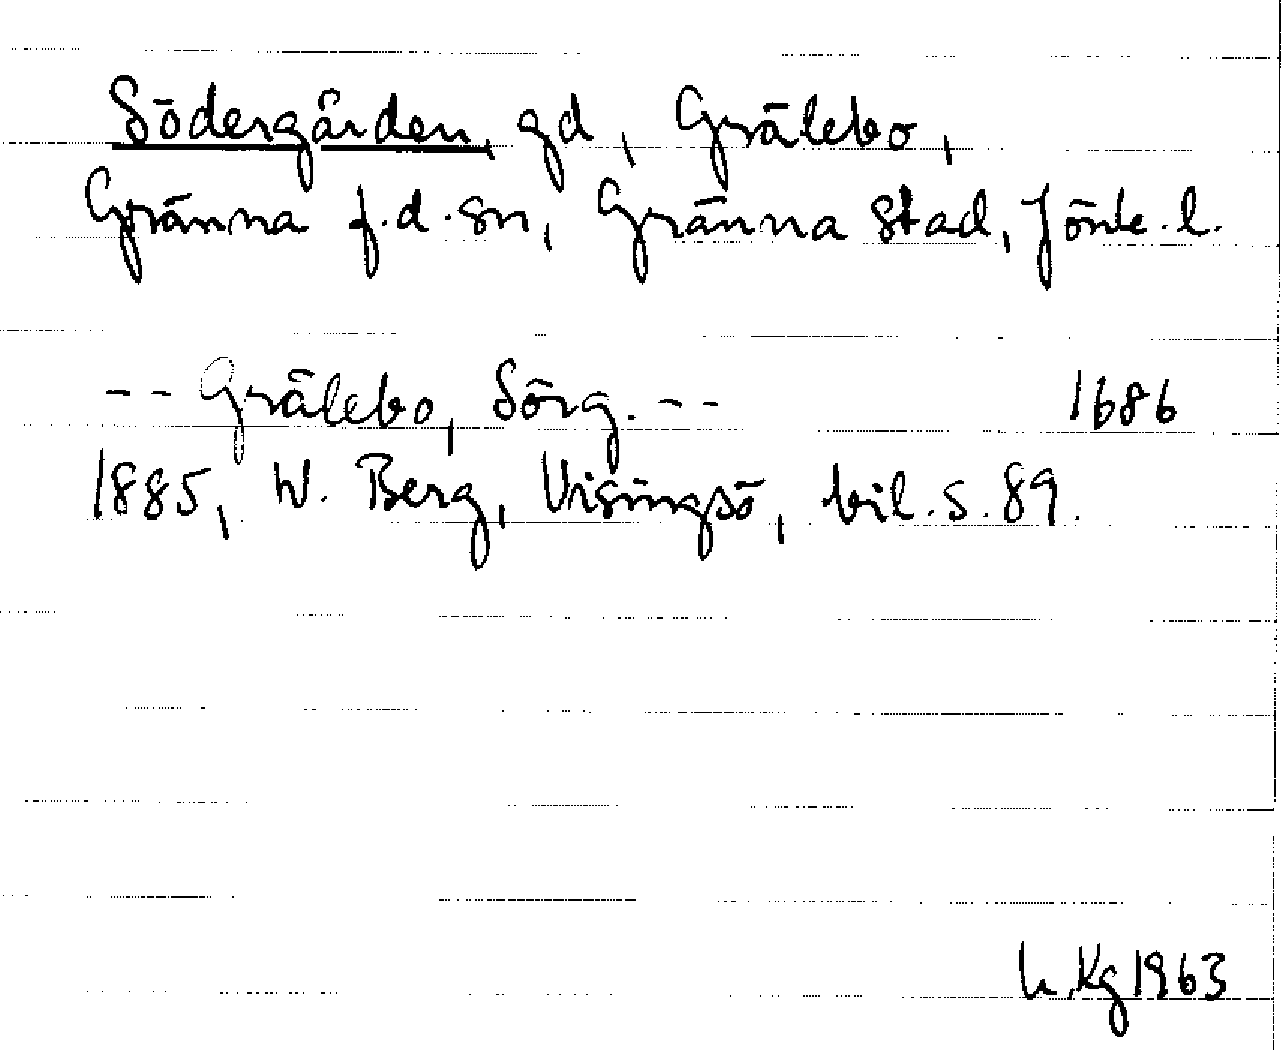 Södergården, gd, Grälebo,
Gränna f.d. sn, Gränna stad, Jönk. l.
-- Grälebo, Sörg. -- 1686
1885, W. Berg, Visingsö, bil. s. 89.
Kg 1963